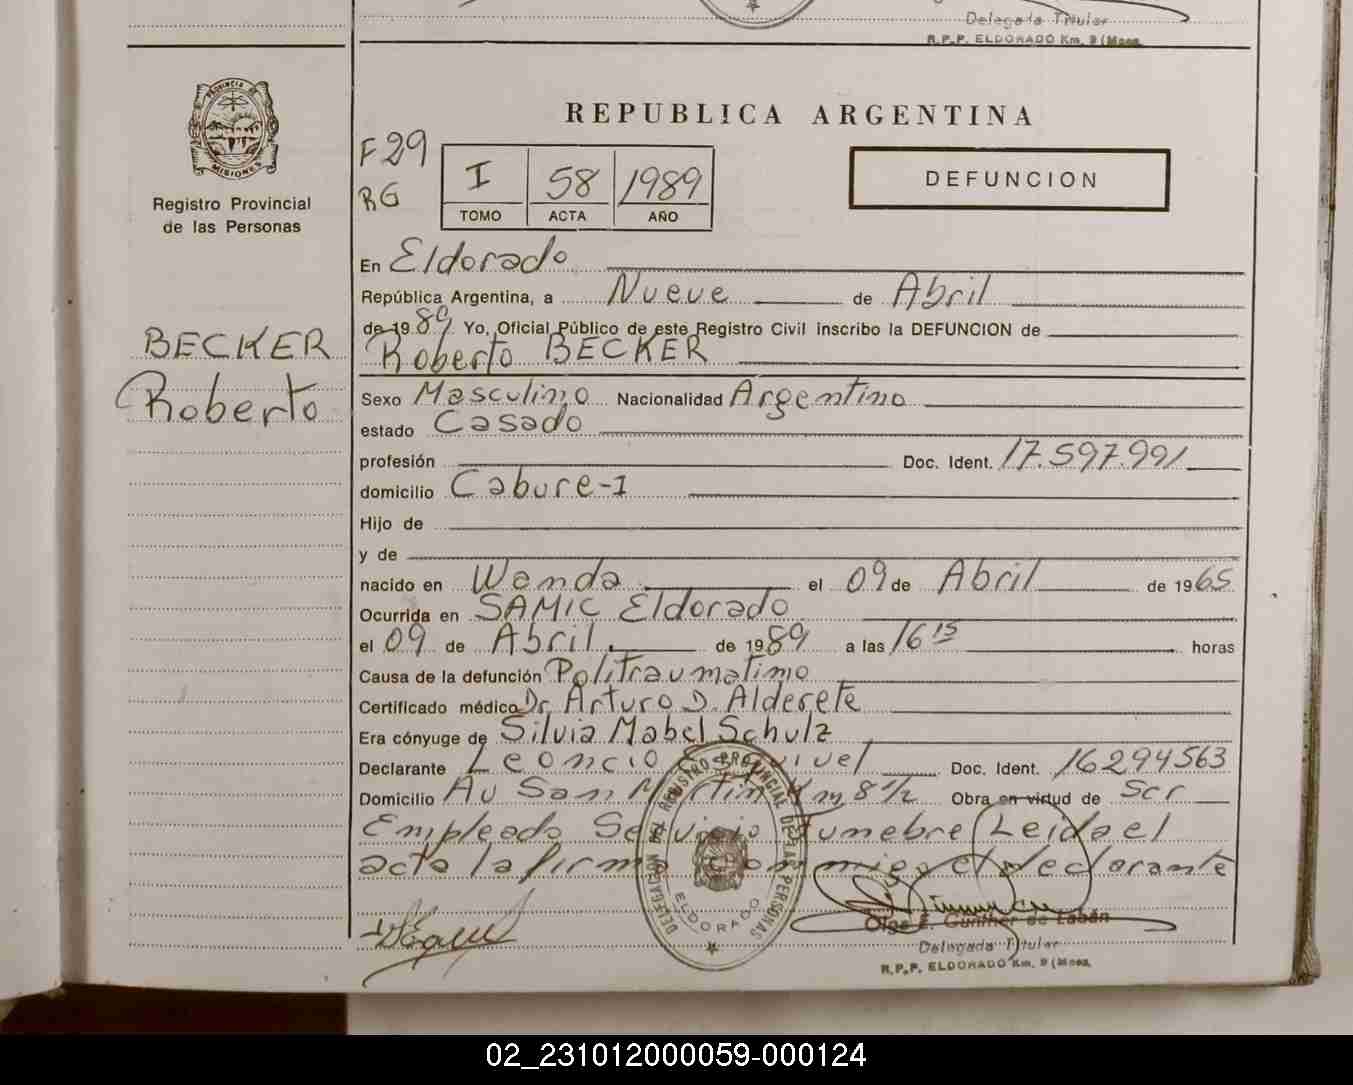 Delegada Titular
R.P.P. ELDORADO Km. 9 (Mnes.
PROVINCIA DE
MISIONES
Registro Provincial
de las Personas
BECKER
Roberto
REPUBLICA ARGENTINA
F29
RG
I 58 1989
TOMO ACTA AÑO
DEFUNCION
En Eldorado
República Argentina, a Nueve de Abril
de 1989 Yo, Oficial Público de este Registro Civil inscribo la DEFUNCION de
Roberto BECKER
Sexo Masculino Nacionalidad Argentino
estado Casado
profesión Doc. Ident. 17.597.991
domicilio Cabure-I
Hijo de
y de
nacido en Wanda el 09 de Abril de 1965
Ocurrida en SAMIC Eldorado
el 09 de Abril de 1989 a las 16 15 horas
Causa de la defunción Politraumatimo
Certificado médico Dr. Arturo D. Alderete
Era cónyuge de Silvia Mabel Schulz
Declarante Leoncio Esquivel Doc. Ident. 16294563
Domicilio Av San Martin Km 8 1/2 Obra en virtud de Ser
Empleado Servicio Funebre Leida el
acta la firma conmigo el declarante
DELEGACION DEL REGISTRO PROVINCIAL DE LAS PERSONAS
ELDORADO
Olga E. Günther de Labán
Delegada Titular
R.P.P. ELDORADO Km. 9 (Mnes.
02_231012000059-000124